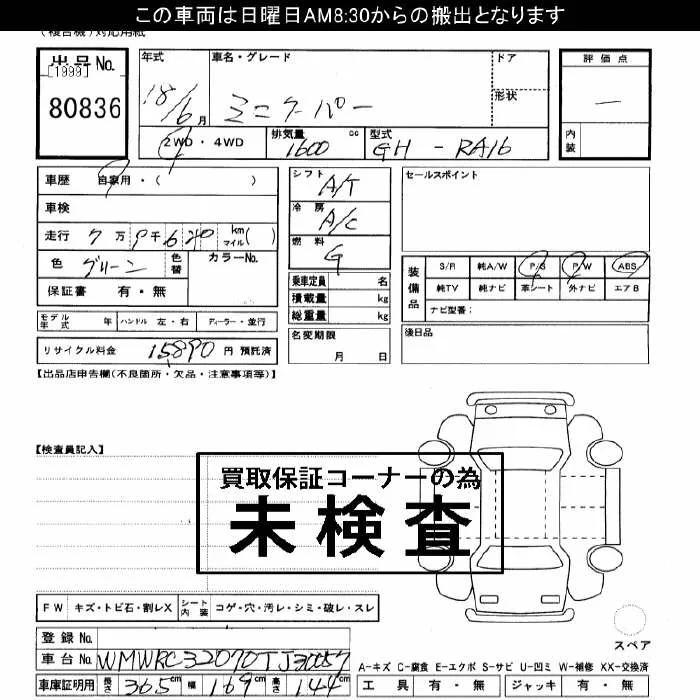 この車両は日曜日AM8:30からの搬出となります
(複合機)対応用紙
出品No.
[1999]
80836
年式
18/6月
車名・グレード
ミニクーパー
ドア
形状
2WD・4WD
排気量 1600 cc
型式 GH-RA16
評価点
ー
内装
車歴 自家用・( )
車検
走行 7万9千6 km マイル( )
色 グリーン 色替 カラーNo.
保証書 有・無
シフト A/T
冷房 A/C
燃料 G
乗車定員 名
積載量 kg
総重量 kg
セールスポイント
装備品
S/R 純A/W P/S P/W ABS
純TV 純ナビ 革シート 外ナビ エアB
ナビ型番:
モデル年式 年 ハンドル 左・右 ディーラー・並行
リサイクル料金 15890 円 預託済
名変期限
月 日
後日品
【出品店申告欄(不良箇所・欠品・注意事項等)】
【検査員記入】
買取保証コーナーの為
未検査
FW キズ・トビ石・割レX シート内装 コゲ・穴・汚レ・シミ・破レ・スレ
スペア
登録No.
車台No. WMWRC32070TJ33057
車庫証明用 長さ 365cm 幅 169cm 高さ 144cm
A-キズ C-腐食 E-エクボ S-サビ U-凹ミ W-補修 XX-交換済
工具 有・無 ジャッキ 有・無